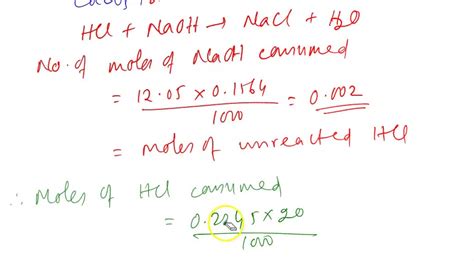 HCl + NaOH → NaCl + H₂O
No. of moles of NaOH consumed
= 12.05 × 0.1564 / 1000 = 0.002
= moles of unreacted HCl
∴ Moles of HCl consumed
= 0.2245 × 20 / 1000